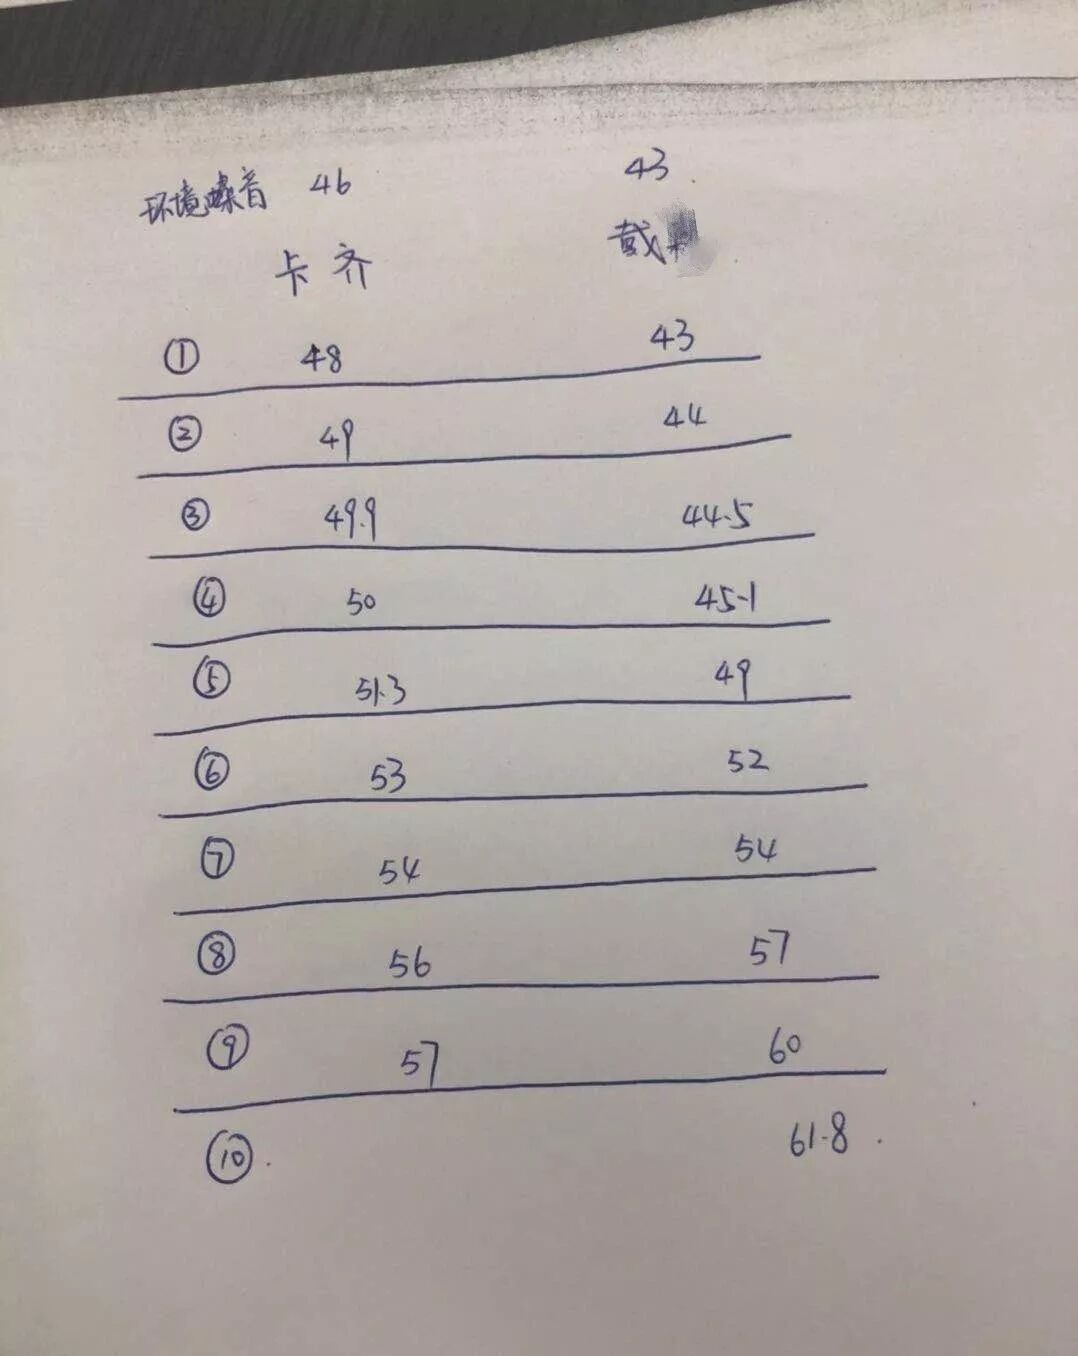 环境噪音 46 43
卡齐 戴
① 48 43
② 49 44
③ 49.9 44.5
④ 50 45.1
⑤ 51.3 49
⑥ 53 52
⑦ 54 54
⑧ 56 57
⑨ 57 60
⑩ 61.8